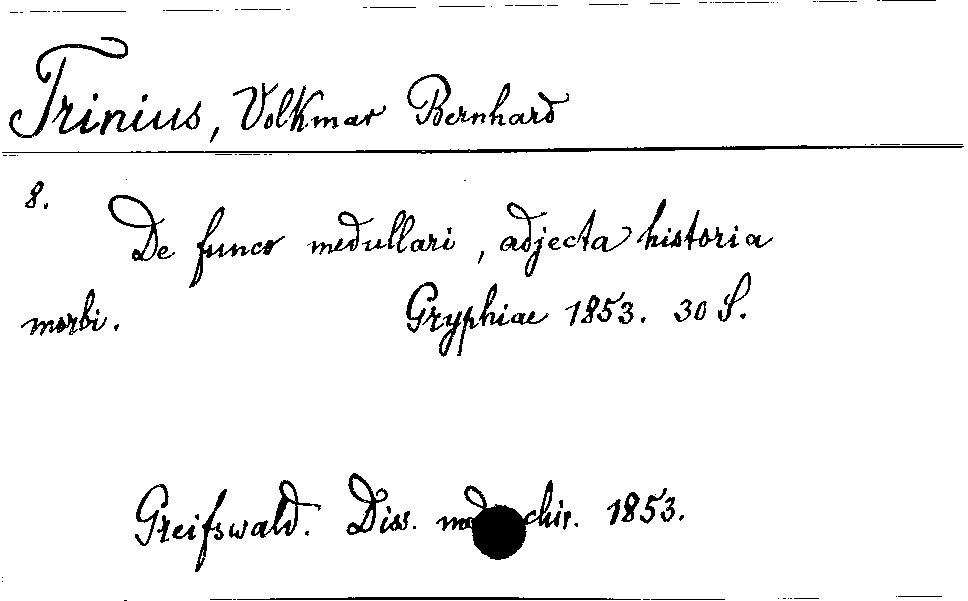 Trinius, Volkmar Bernhard
8.
De funco medullari, adjecta historia
morbi. Gryphiae 1853. 30 S.
Greifswald. Diss. med. chir. 1853.